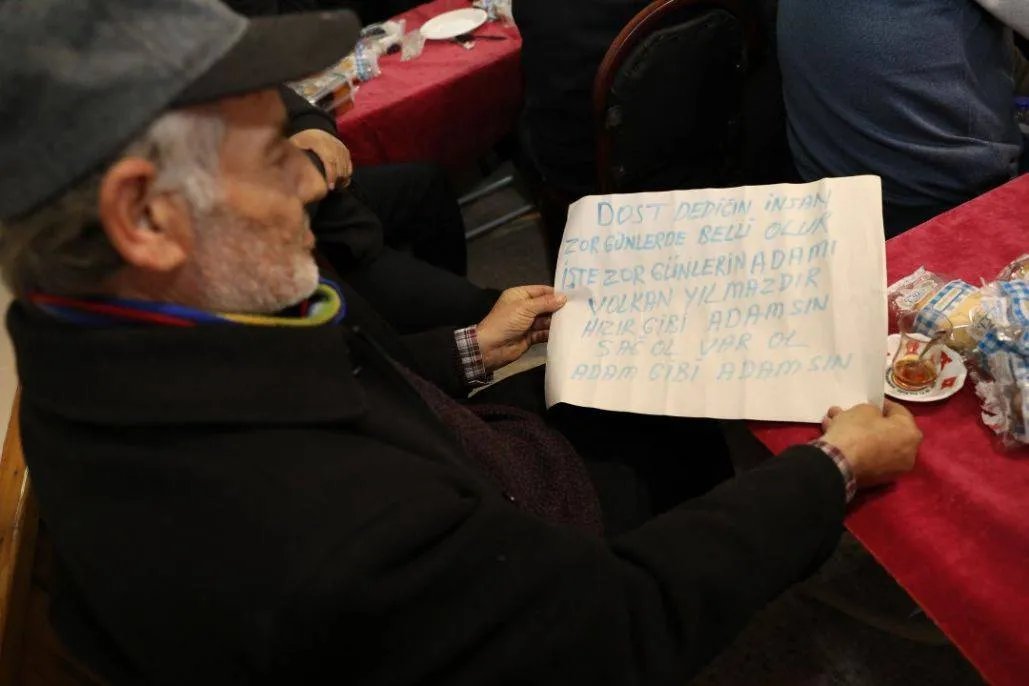 DOST DEDİĞİN İNSAN
ZOR GÜNLERDE BELLİ OLUR
İŞTE ZOR GÜNLERİN ADAMI
VOLKAN YILMAZDIR
HIZIR GİBİ ADAMSIN
SAĞ OL VAR OL
ADAM GİBİ ADAMSIN